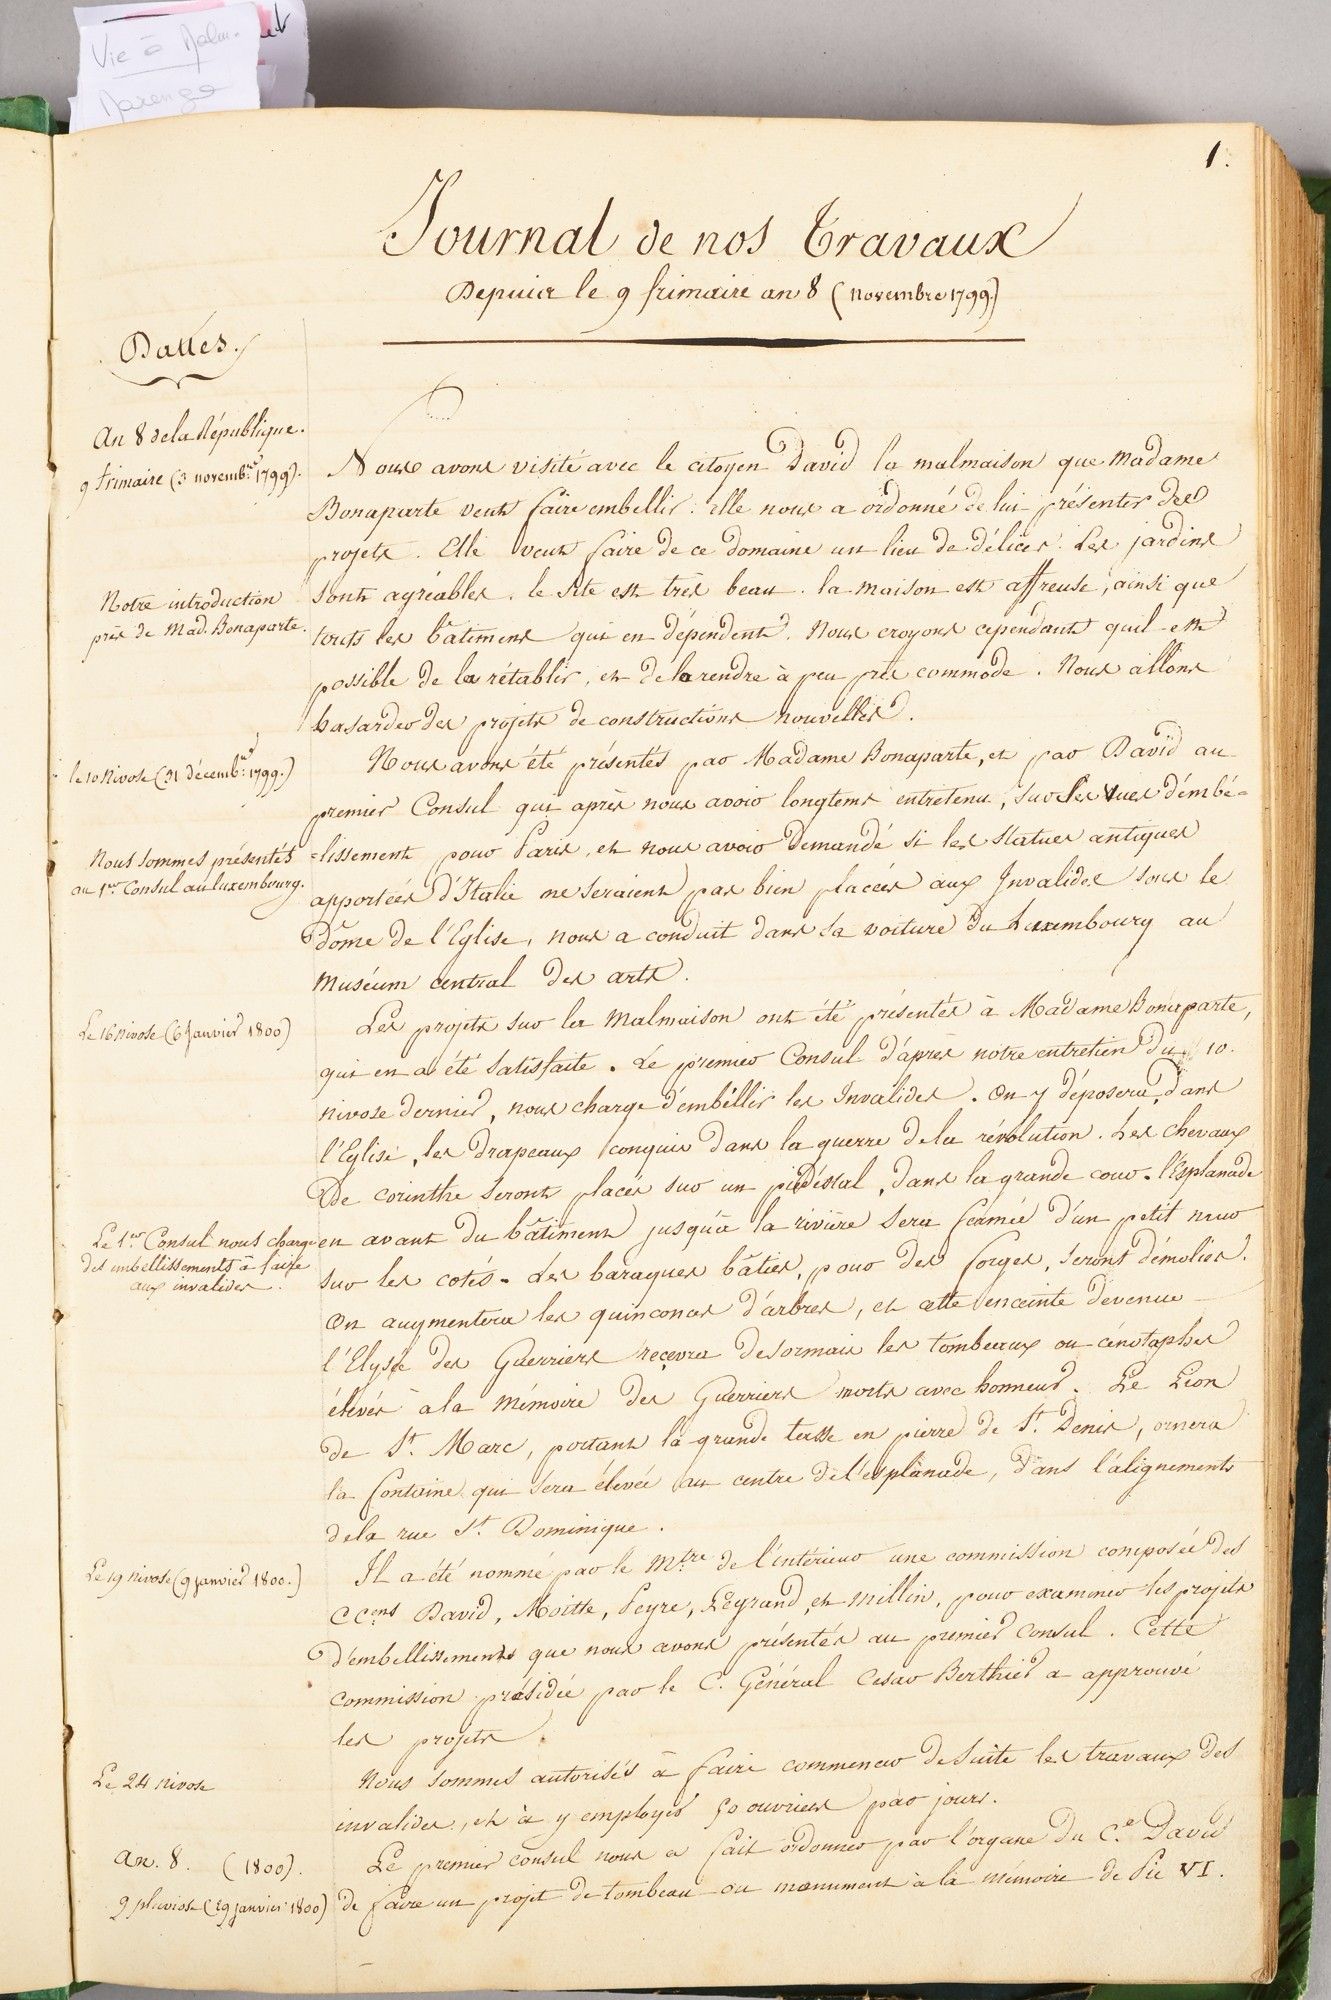 Vie à Malm.
Marengo
1.
Journal de nos Travaux
Depuis le 9 frimaire an 8 (novembre 1799.)
Dattes.
An 8 de la République.
9 frimaire (3 novemb.re 1799).
Nous avons visité avec le citoyen David la malmaison que Madame
Bonaparte veut faire embellir. Elle nous a ordonné de lui présenter des
projets. Elle veut faire de ce domaine un lieu de délices. Les jardins
sont agréables, le site est très beau. la maison est affreuse, ainsi que
Notre introduction
près de Mad. Bonaparte.
touts les bâtimens qui en dépendent. Nous croyons cependant quil est
possible de la rétablir, et de la rendre à peu près commode. Nous allons
hasarder des projets de constructions nouvelles.
le 10 Nivose (31 décemb.re 1799.)
Nous avons été présentés par Madame Bonaparte, et par David au
premier Consul qui après nous avoir longtems entretenu, sur les vues d'embé-
Nous sommes présentés
au 1.er Consul au luxembourg.
=lissement pour Paris, et nous avoir demandé si les statues antiques
apportées d'Italie ne seraient pas bien placées aux Invalides sous le
Dôme de l'Eglise, nous a conduit dans sa voiture du Luxembourg au
Muséum central des arts.
Le 16 nivose (6 janvier 1800)
Les projets sur la Malmaison ont été présentés à Madame Bonaparte,
qui en a été satisfaite. Le premier Consul d'après notre entretien du 10
nivose dernier, nous charge d'embéllir les Invalides. On y déposera, dans
l'Eglise, les drapeaux conquis dans la guerre de la révolution. Les chevaux
de corinthe seront placés sur un piédéstal, dans la grande cour. l'Esplanade
Le 1.er Consul nous charge
des embellissements à faire
aux invalides.
en avant du bâtiment jusqu'à la rivière sera fermée d'un petit mur
sur les cotés. Les baraques bâties, pour des forges, seront démolies.
On augmentera les quinconces d'arbres, et cette enceinte devenue
l'Elysée des Guerriers reçevra desormais les tombeaux ou cénotaphes
élevés à la mémoire des Guerriers morts avec honneur. Le Lion
de S.t Marc, portant la grande tasse en pierre de S.t Denis, ornera
la fontaine qui sera élevée au centre de l'esplanade, dans l'alignements
de la rue S.t Dominique.
Le 19 nivose (9 janvier 1800.)
Il a été nommé par le M.tre de l'intérieur une commission composée des
CC.ens David, Moitte, Peyre, Legrand, et Millin, pour examiner les projets
d'embellissements que nous avons présentés au premier Consul. Cette
commission présidée par le C. Général Cesar Berthier a approuvé
les projets.
Le 24 nivose
Nous sommes autorisés à faire commencer de suite les travaux des
invalides, et à y employer 50 ouvriers par jours.
An. 8. (1800).
9 pluviose (29 janvier 1800)
Le premier consul nous a fait ordonner par l'organe du C.e David
de faire un projet de tombeau ou monument à la mémoire de Pie VI.